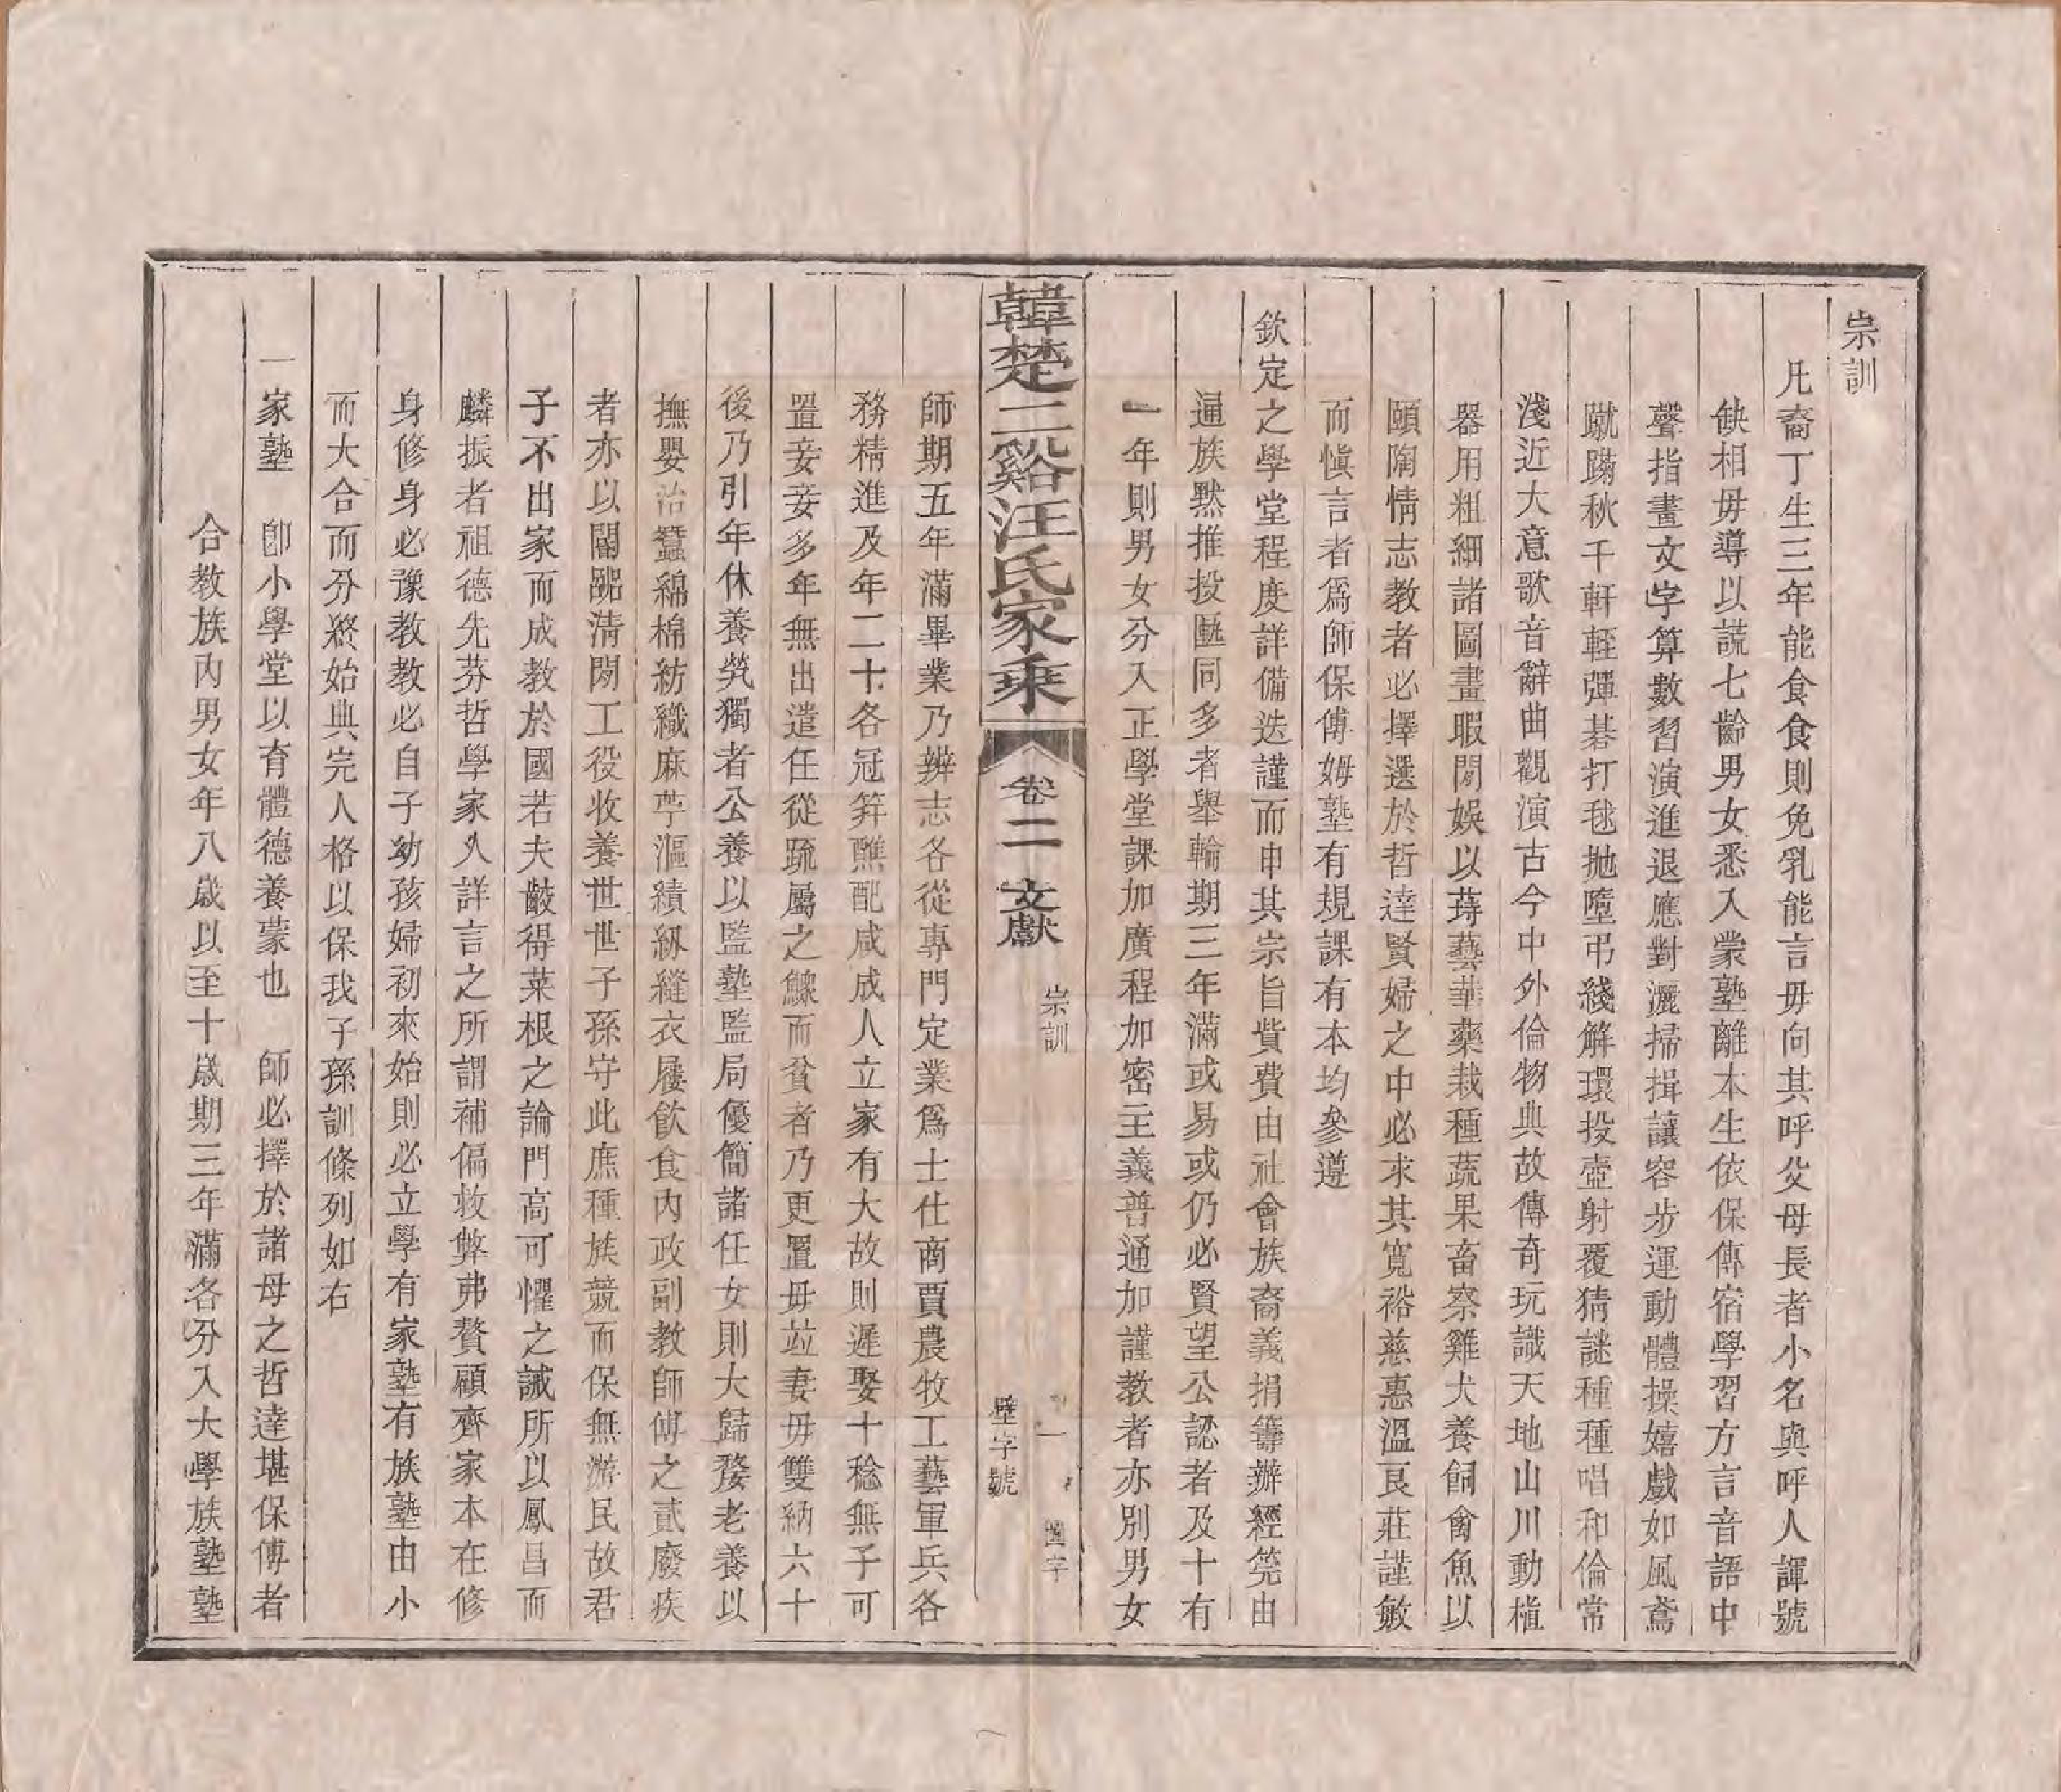 宗訓
凡裔丁生三年能食食則免乳能言毋向其呼父母長者小名與呼人諢號
缺相毋導以謊七齡男女悉入蒙塾離本生依保傅宿學習方言音語中
聲指畫文字算數習演進退應對灑掃揖讓容步運動體操嬉戲如風鳶
蹴踘秋千軒輊彈碁打毬拋墮弔綫解環投壺射覆猜謎種種唱和倫常
淺近大意歌音辭曲觀演古今中外倫物典故傳奇玩識天地山川動植
器用粗細諸圖畫暇閒娛以蒔藝華藥栽種蔬果畜察雞犬養飼禽魚以
頤陶情志教者必擇選於哲達賢婦之中必求其寬裕慈惠溫良莊謹敏
而愼言者爲師保傅姆塾有規課有本均參遵
欽定之學堂程度詳備迭謹而申其宗旨貲費由社會族裔義捐籌辦經筦由
逼族黙推投匭同多者舉輪期三年滿或易或仍必賢望公認者及十有
一年則男女分入正學堂課加廣程加密主義普通加謹教者亦別男女
韓楚二谿汪氏家乘
卷二 文獻
宗訓
一
圖字
壁字號
師期五年滿畢業乃辨志各從專門定業爲士仕商賈農牧工藝軍兵各
務精進及年二十各冠笄醮配咸成人立家有大故則遲娶十稔無子可
置妾妾多年無出遣任從疏屬之鰥而貧者乃更置毋竝妻毋雙納六十
後乃引年休養煢獨者公養以監塾監局優簡諸任女則大歸婺老養以
撫嬰治蠶綿棉紡織麻苧漚績紉縫衣屨飲食內政副教師傅之貳廢疾
者亦以闢淸閒工役收養世世子孫守此庶種族競而保無游民故君
子不出家而成教於國若夫齩得菜根之論門高可懼之誡所以鳳昌而
麟振者祖德先芬哲學家久詳言之所謂補偏救弊弗贅顧齊家本在修
身修身必豫教教必自子幼孩婦初來始則必立學有家塾有族塾由小
而大合而分終始典完人格以保我子孫訓條列如右
一家塾 卽小學堂以育體德養蒙也 師必擇於諸母之哲達堪保傅者
合教族內男女年八歲以至十歲期三年滿各分入大學族塾塾